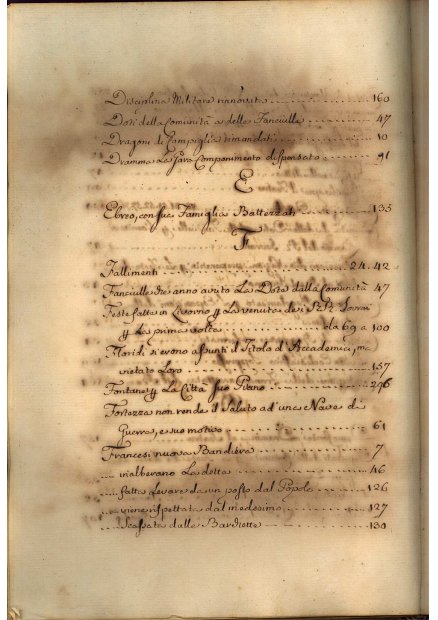 Disciplina Militare rinnovata 160
Doti della Comunità a delle Fanciulle 47
Dragoni di Campiglia rimandati 10
Dramma Sacro Componimento dispensato 91
E
Ebreo, con sue Famiglia Battezzati 135
F
Fallimenti 24. 42
Fanciulle che anno avuto La Dote dalla Comunità 47
Feste fatte in Livorno p La venuta dei RR. Sovrani
p La prima volta da 69 a 100
Floridi si evono assunti il Titolo d'Accademici, ma
vietato Loro 157
Fontane p La Città suo Piano 246
Fortezza non rende il Saluto ad' una Nave di
Guerra, e suo motivo 61
Francesi nuova Bandiera 7
inalberano La detta 46
fatta Levare da un posto dal Popolo 126
viene rispettata dal medesimo 127
Scassata dalle Bardotte 130